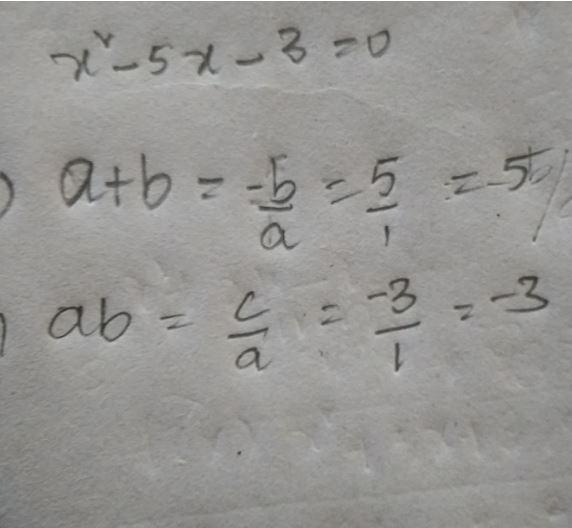 x² - 5x - 3 = 0
) a+b = -b/a = 5/1 = 5
) ab = c/a = -3/1 = -3